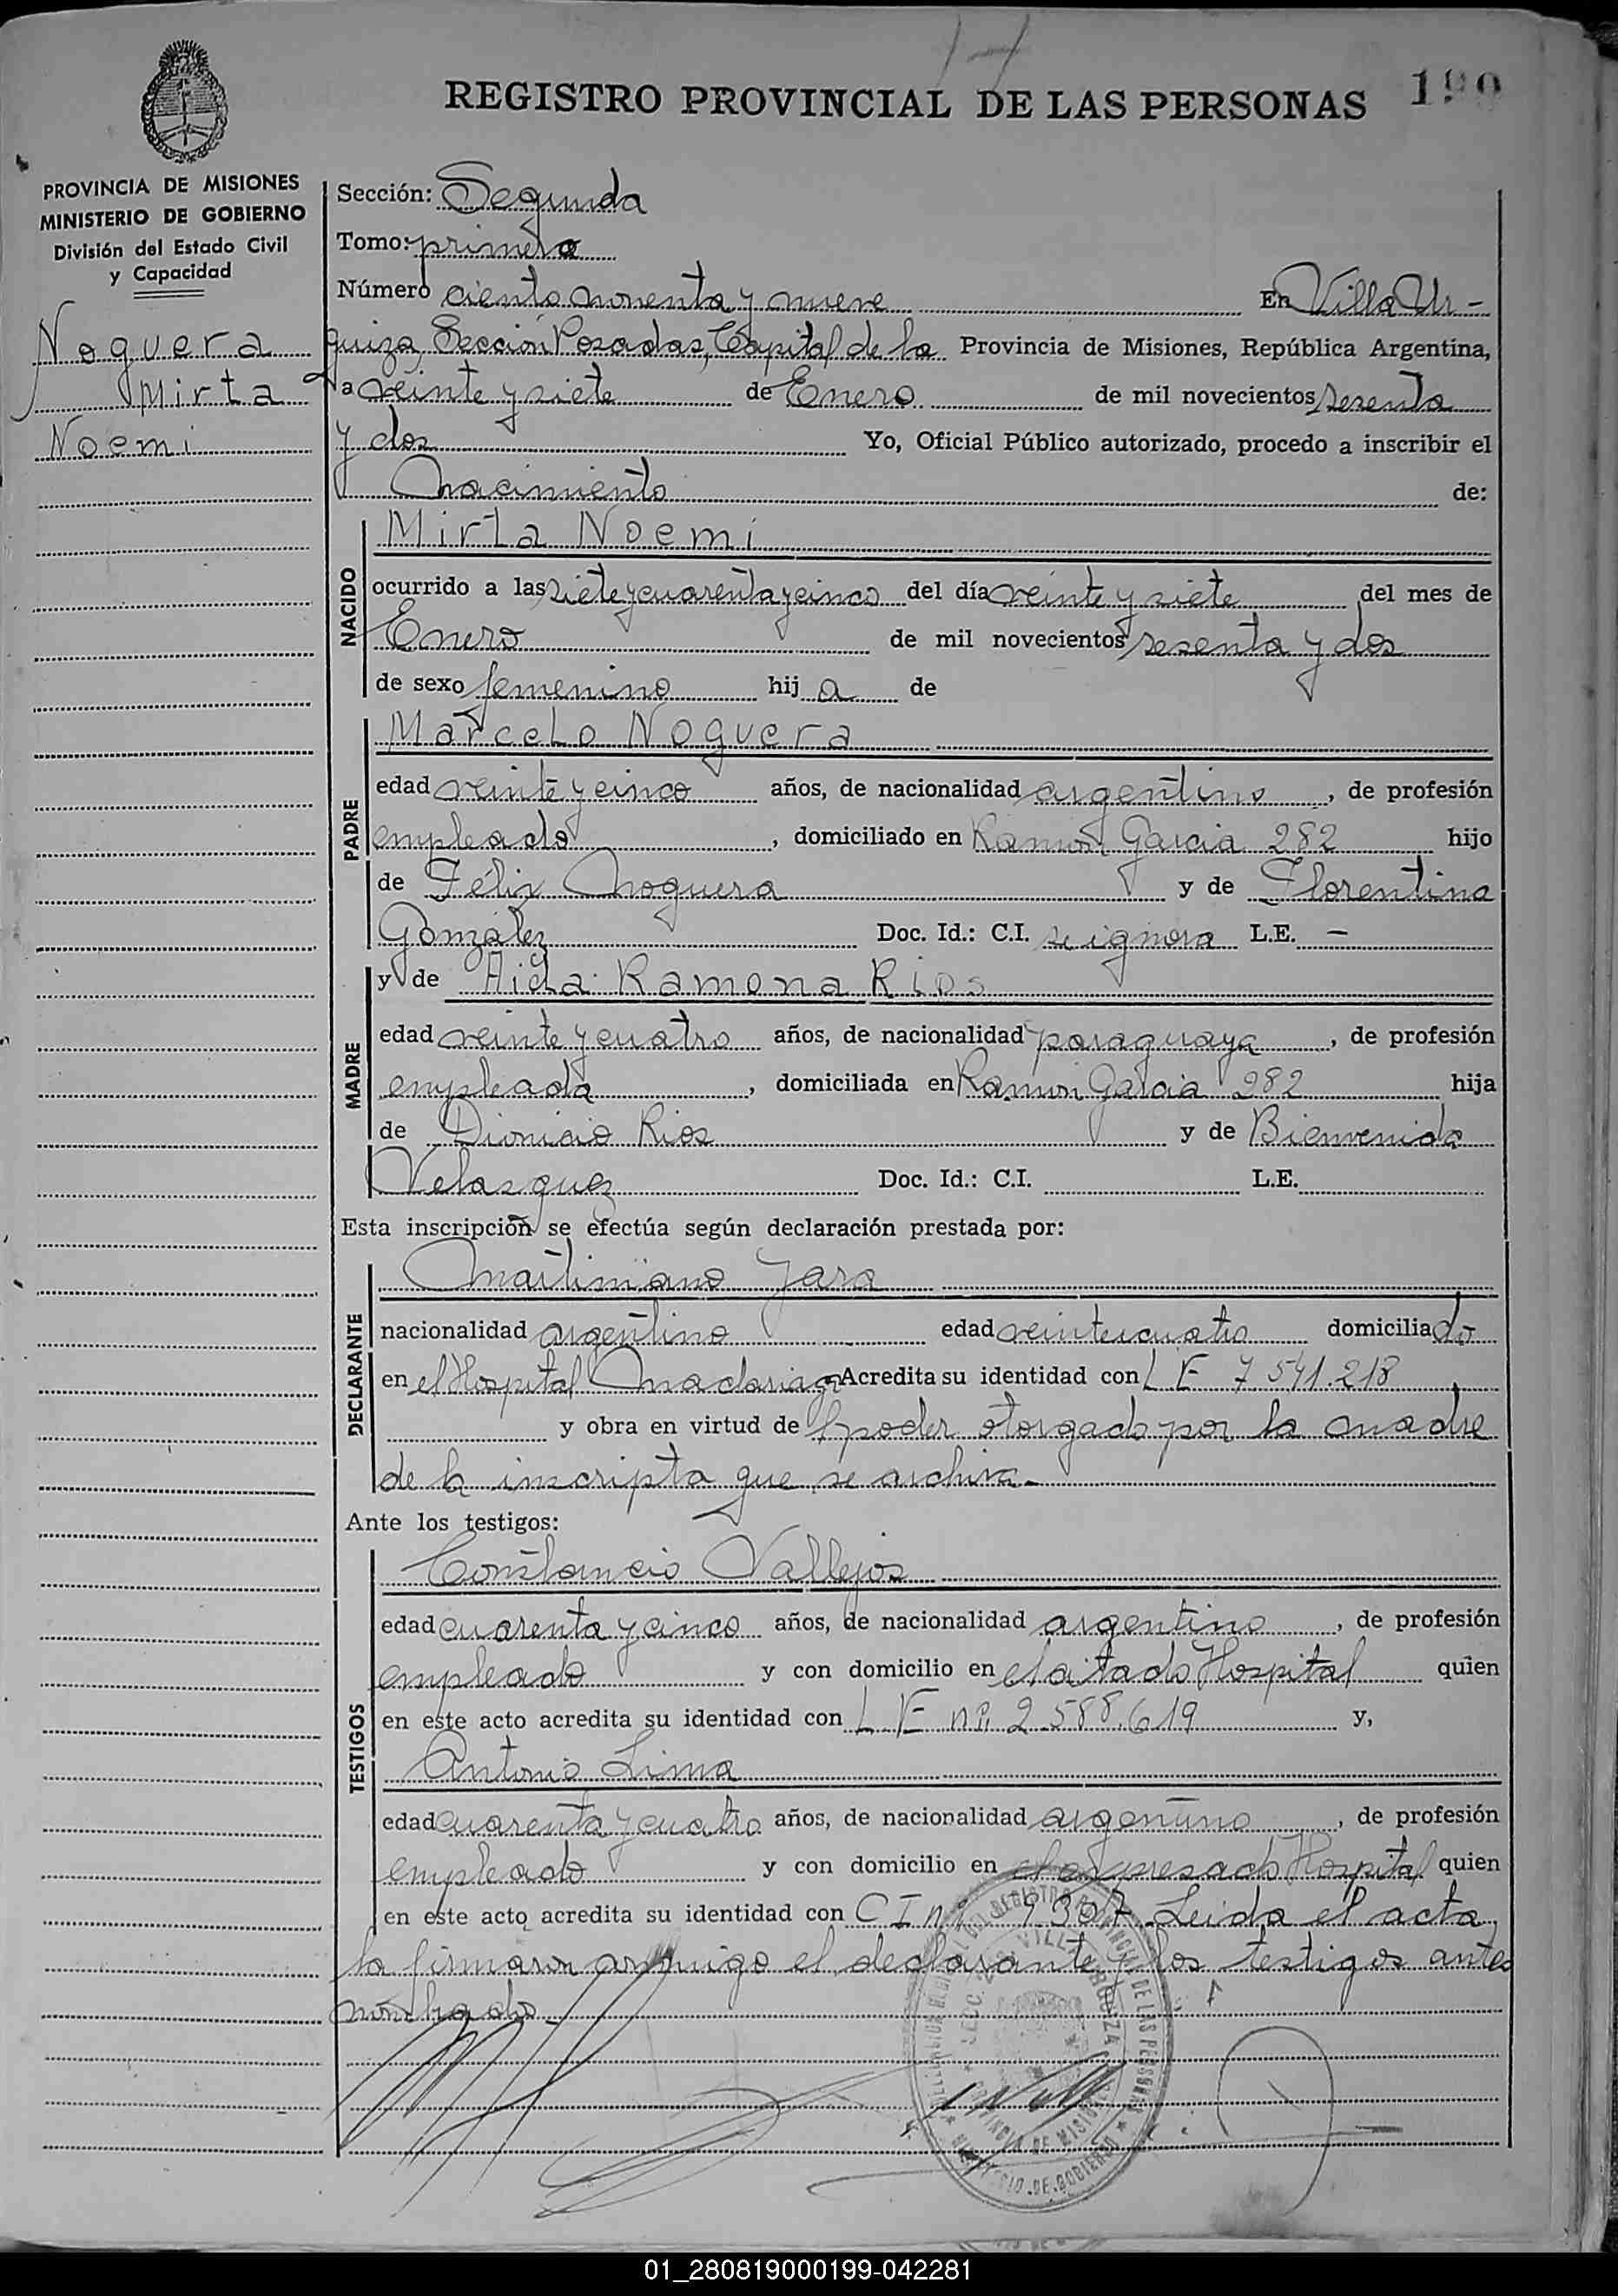 REGISTRO PROVINCIAL DE LAS PERSONAS
PROVINCIA DE MISIONES
MINISTERIO DE GOBIERNO
División del Estado Civil
y Capacidad
Noguera
Mirta
Noemi
Sección: Segunda
Tomo: primero
Número ciento noventa y nueve En Villa Ur-
quiza, Sección Posadas, Capital de la Provincia de Misiones, República Argentina,
a veinte y siete de Enero de mil novecientos sesenta
y dos Yo, Oficial Público autorizado, procedo a inscribir el
nacimiento de:
NACIDO
Mirta Noemi
ocurrido a las siete y cuarenta y cinco del día veinte y siete del mes de
Enero de mil novecientos sesenta y dos
de sexo femenino hij a de
PADRE
Marcelo Noguera
edad veinte y cinco años, de nacionalidad argentino, de profesión
empleado, domiciliado en Ramón Garcia 282 hijo
de Félix Noguera y de Florentina
González Doc. Id.: C.I. se ignora L.E. -
MADRE
y de Aida Ramona Rios
edad veinte y cuatro años, de nacionalidad paraguaya, de profesión
empleada, domiciliada en Ramón Garcia 282 hija
de Dionicio Rios y de Bienvenida
Velasquez Doc. Id.: C.I. L.E.
Esta inscripción se efectúa según declaración prestada por:
DECLARANTE
Martiniano Jara
nacionalidad argentino edad veintecuatro domiciliado
en el Hospital Madariaga Acredita su identidad con L E 7.541.218
y obra en virtud de poder otorgado por la madre
de la inscripta que se archiva.-
Ante los testigos:
TESTIGOS
Constancio Vallejos
edad cuarenta y cinco años, de nacionalidad argentino, de profesión
empleado y con domicilio en el citado Hospital quien
en este acto acredita su identidad con L E nº 2.588.619 y,
Antonio Lima
edad cuarenta y cuatro años, de nacionalidad argentino, de profesión
empleado y con domicilio en el expresado Hospital quien
en este acto acredita su identidad con C I nº 9.307 Leida el acta
la firmaron conmigo el declarante y los testigos antes
nombrados
01_280819000199-042281